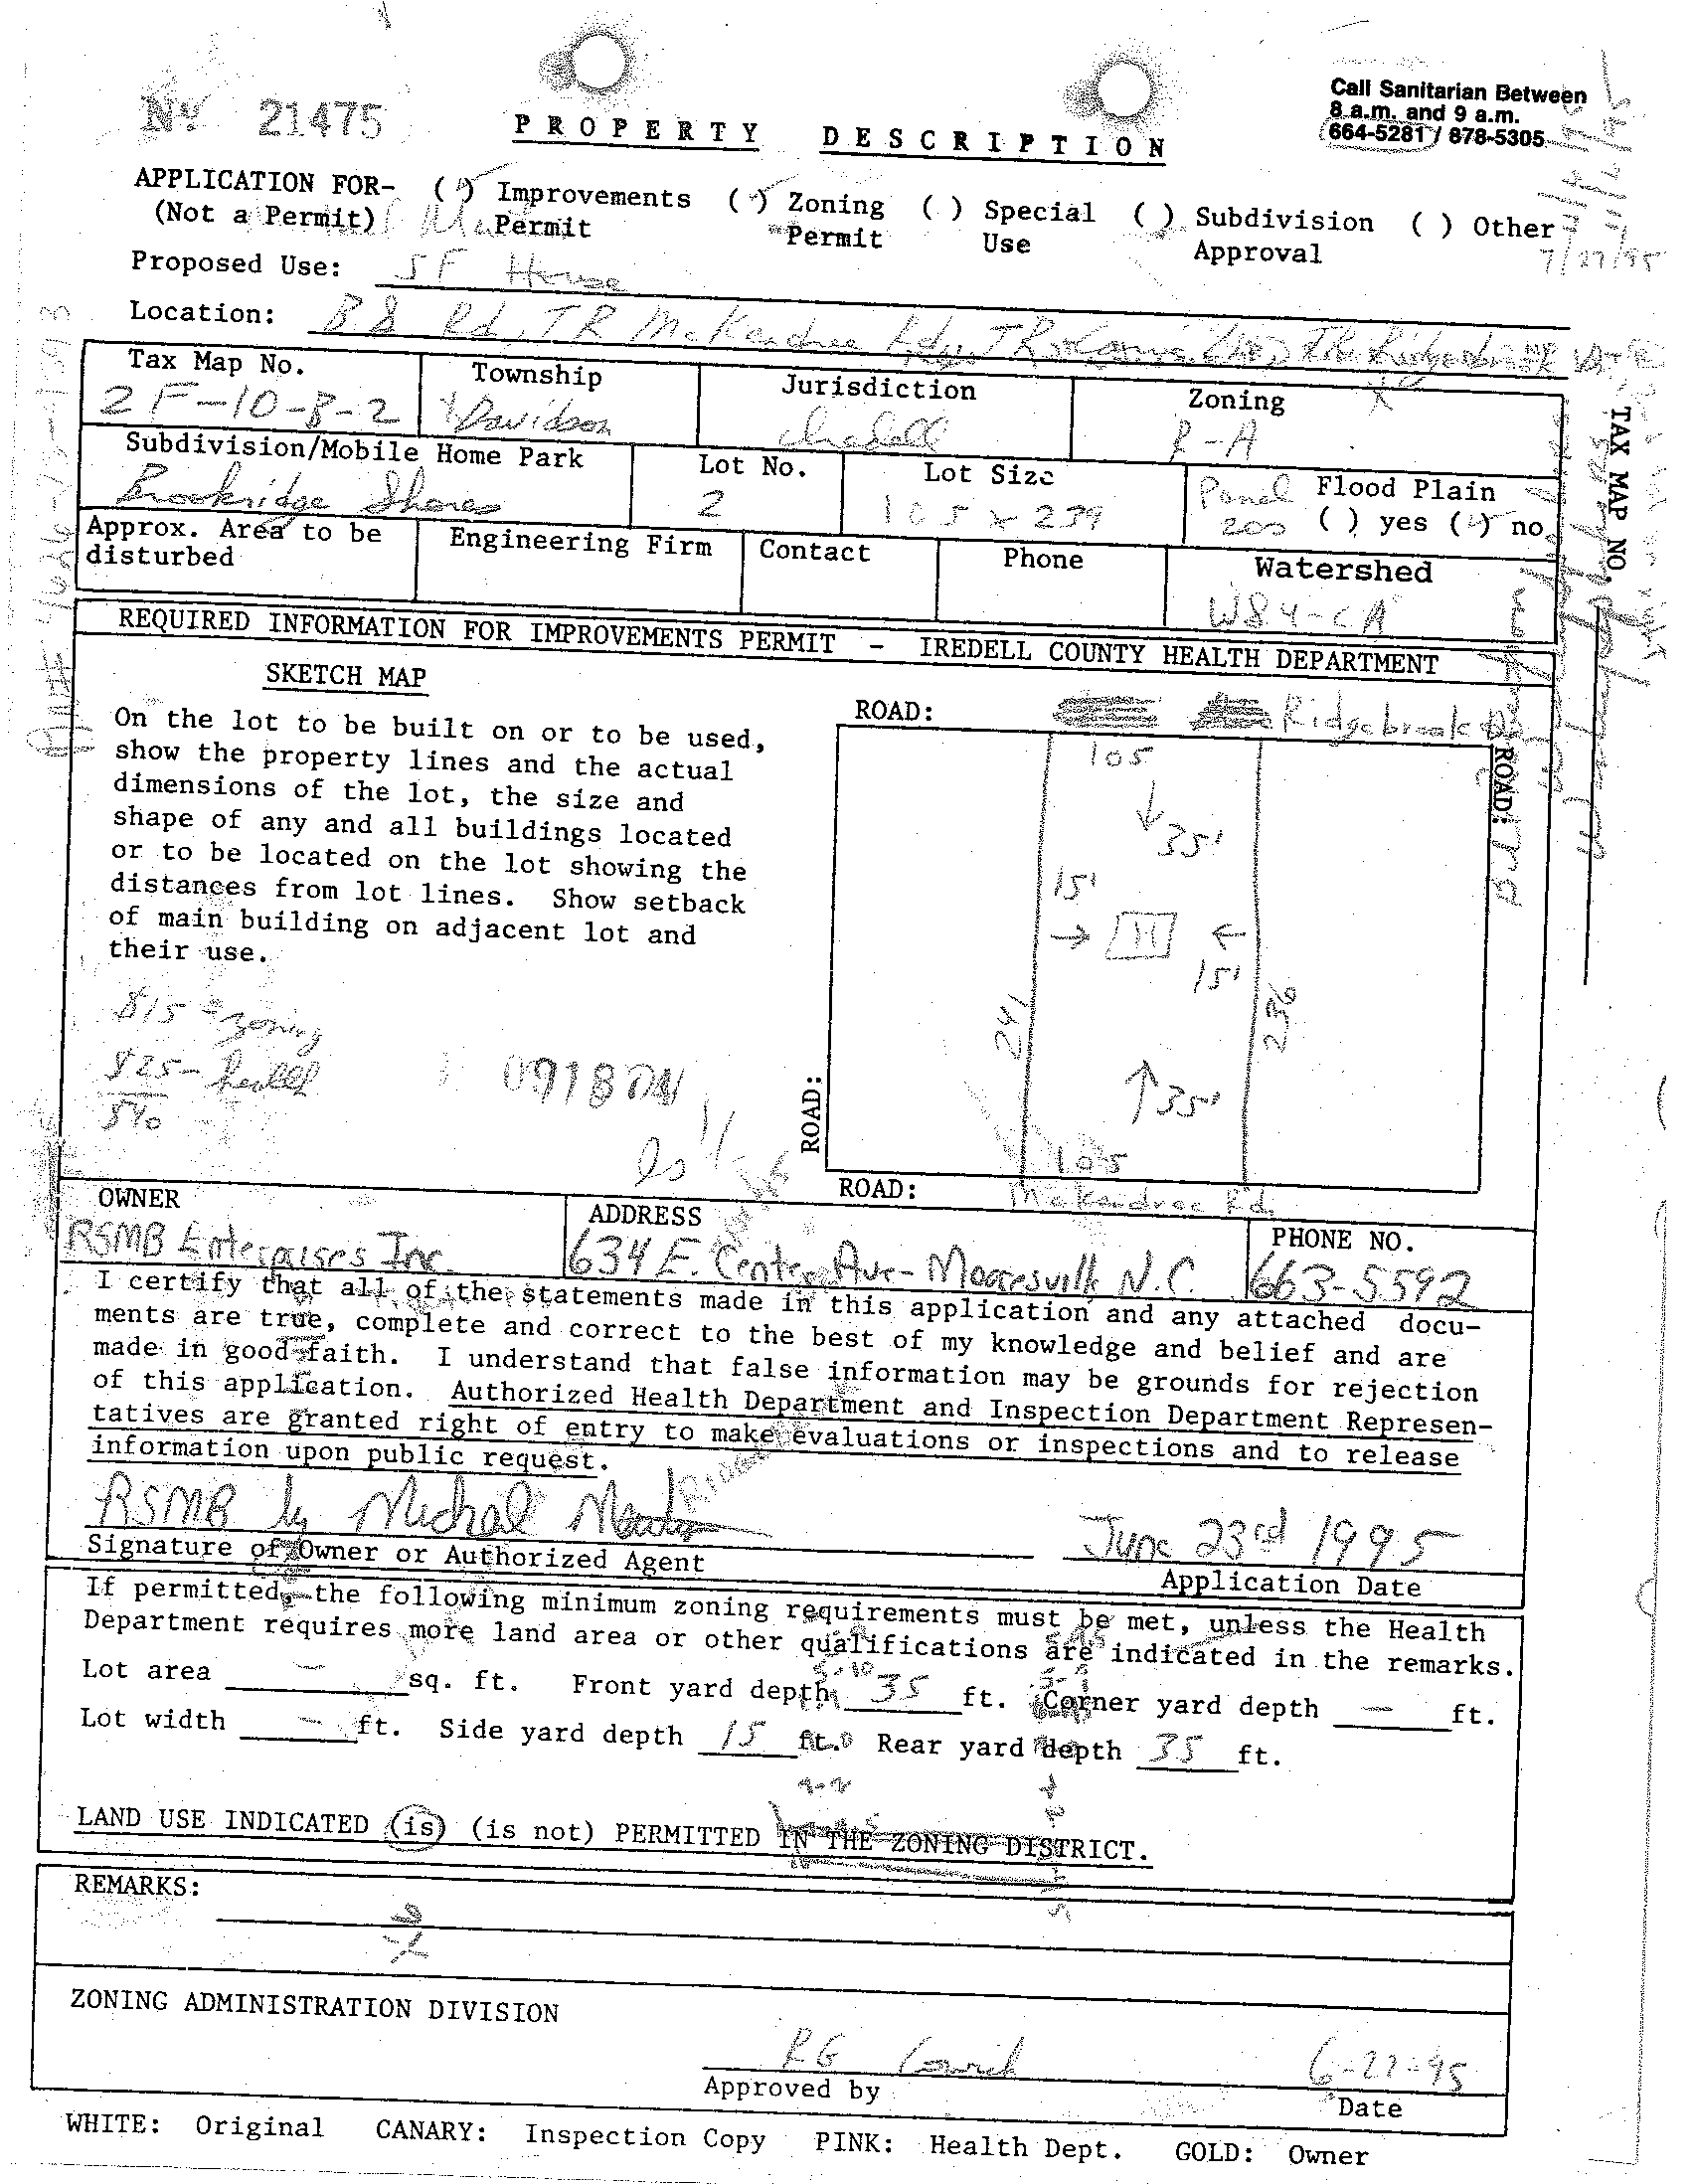 Call Sanitarian Between
8 a.m. and 9 a.m.
664-5281 / 878-5305
No 21475
PROPERTY DESCRIPTION
APPLICATION FOR- ( ) Improvements ( ) Zoning ( ) Special ( ) Subdivision ( ) Other
(Not a Permit) Permit Permit Use Approval
7/27/95
Proposed Use: SF House
Location: Rd, TR McKendree Rd, TR
Tax Map No. Township Jurisdiction Zoning
2F-10-B-2 Davidson Iredell R-A
Subdivision/Mobile Home Park Lot No. Lot Size Flood Plain
Brookridge Shores 2 105 x 239 Panel 200 ( ) yes ( ) no
Approx. Area to be disturbed Engineering Firm Contact Phone Watershed
WS4-CA
TAX MAP NO.
REQUIRED INFORMATION FOR IMPROVEMENTS PERMIT - IREDELL COUNTY HEALTH DEPARTMENT
SKETCH MAP
On the lot to be built on or to be used,
show the property lines and the actual
dimensions of the lot, the size and
shape of any and all buildings located
or to be located on the lot showing the
distances from lot lines. Show setback
of main building on adjacent lot and
their use.
$15 - zoning
$25 - health
$40
ROAD: Ridgebrook Dr
105
35'
15'
H
15'
241
236
35'
105
ROAD:
ROAD:
ROAD: McKendree Rd.
OWNER ADDRESS PHONE NO.
RSMB Enterprises Inc. 634 E. Center Ave - Mooresville N.C. 663-5592
I certify that all of the statements made in this application and any attached docu-
ments are true, complete and correct to the best of my knowledge and belief and are
made in good faith. I understand that false information may be grounds for rejection
of this application. Authorized Health Department and Inspection Department Represen-
tatives are granted right of entry to make evaluations or inspections and to release
information upon public request.
RSMB by Michael
June 23rd 1995
Signature of Owner or Authorized Agent Application Date
If permitted, the following minimum zoning requirements must be met, unless the Health
Department requires more land area or other qualifications are indicated in the remarks.
Lot area - sq. ft. Front yard depth 35 ft. Corner yard depth - ft.
Lot width - ft. Side yard depth 15 ft. Rear yard depth 35 ft.
LAND USE INDICATED (is) (is not) PERMITTED IN THE ZONING DISTRICT.
REMARKS:
ZONING ADMINISTRATION DIVISION
RG 6-27-95
Approved by Date
WHITE: Original CANARY: Inspection Copy PINK: Health Dept. GOLD: Owner